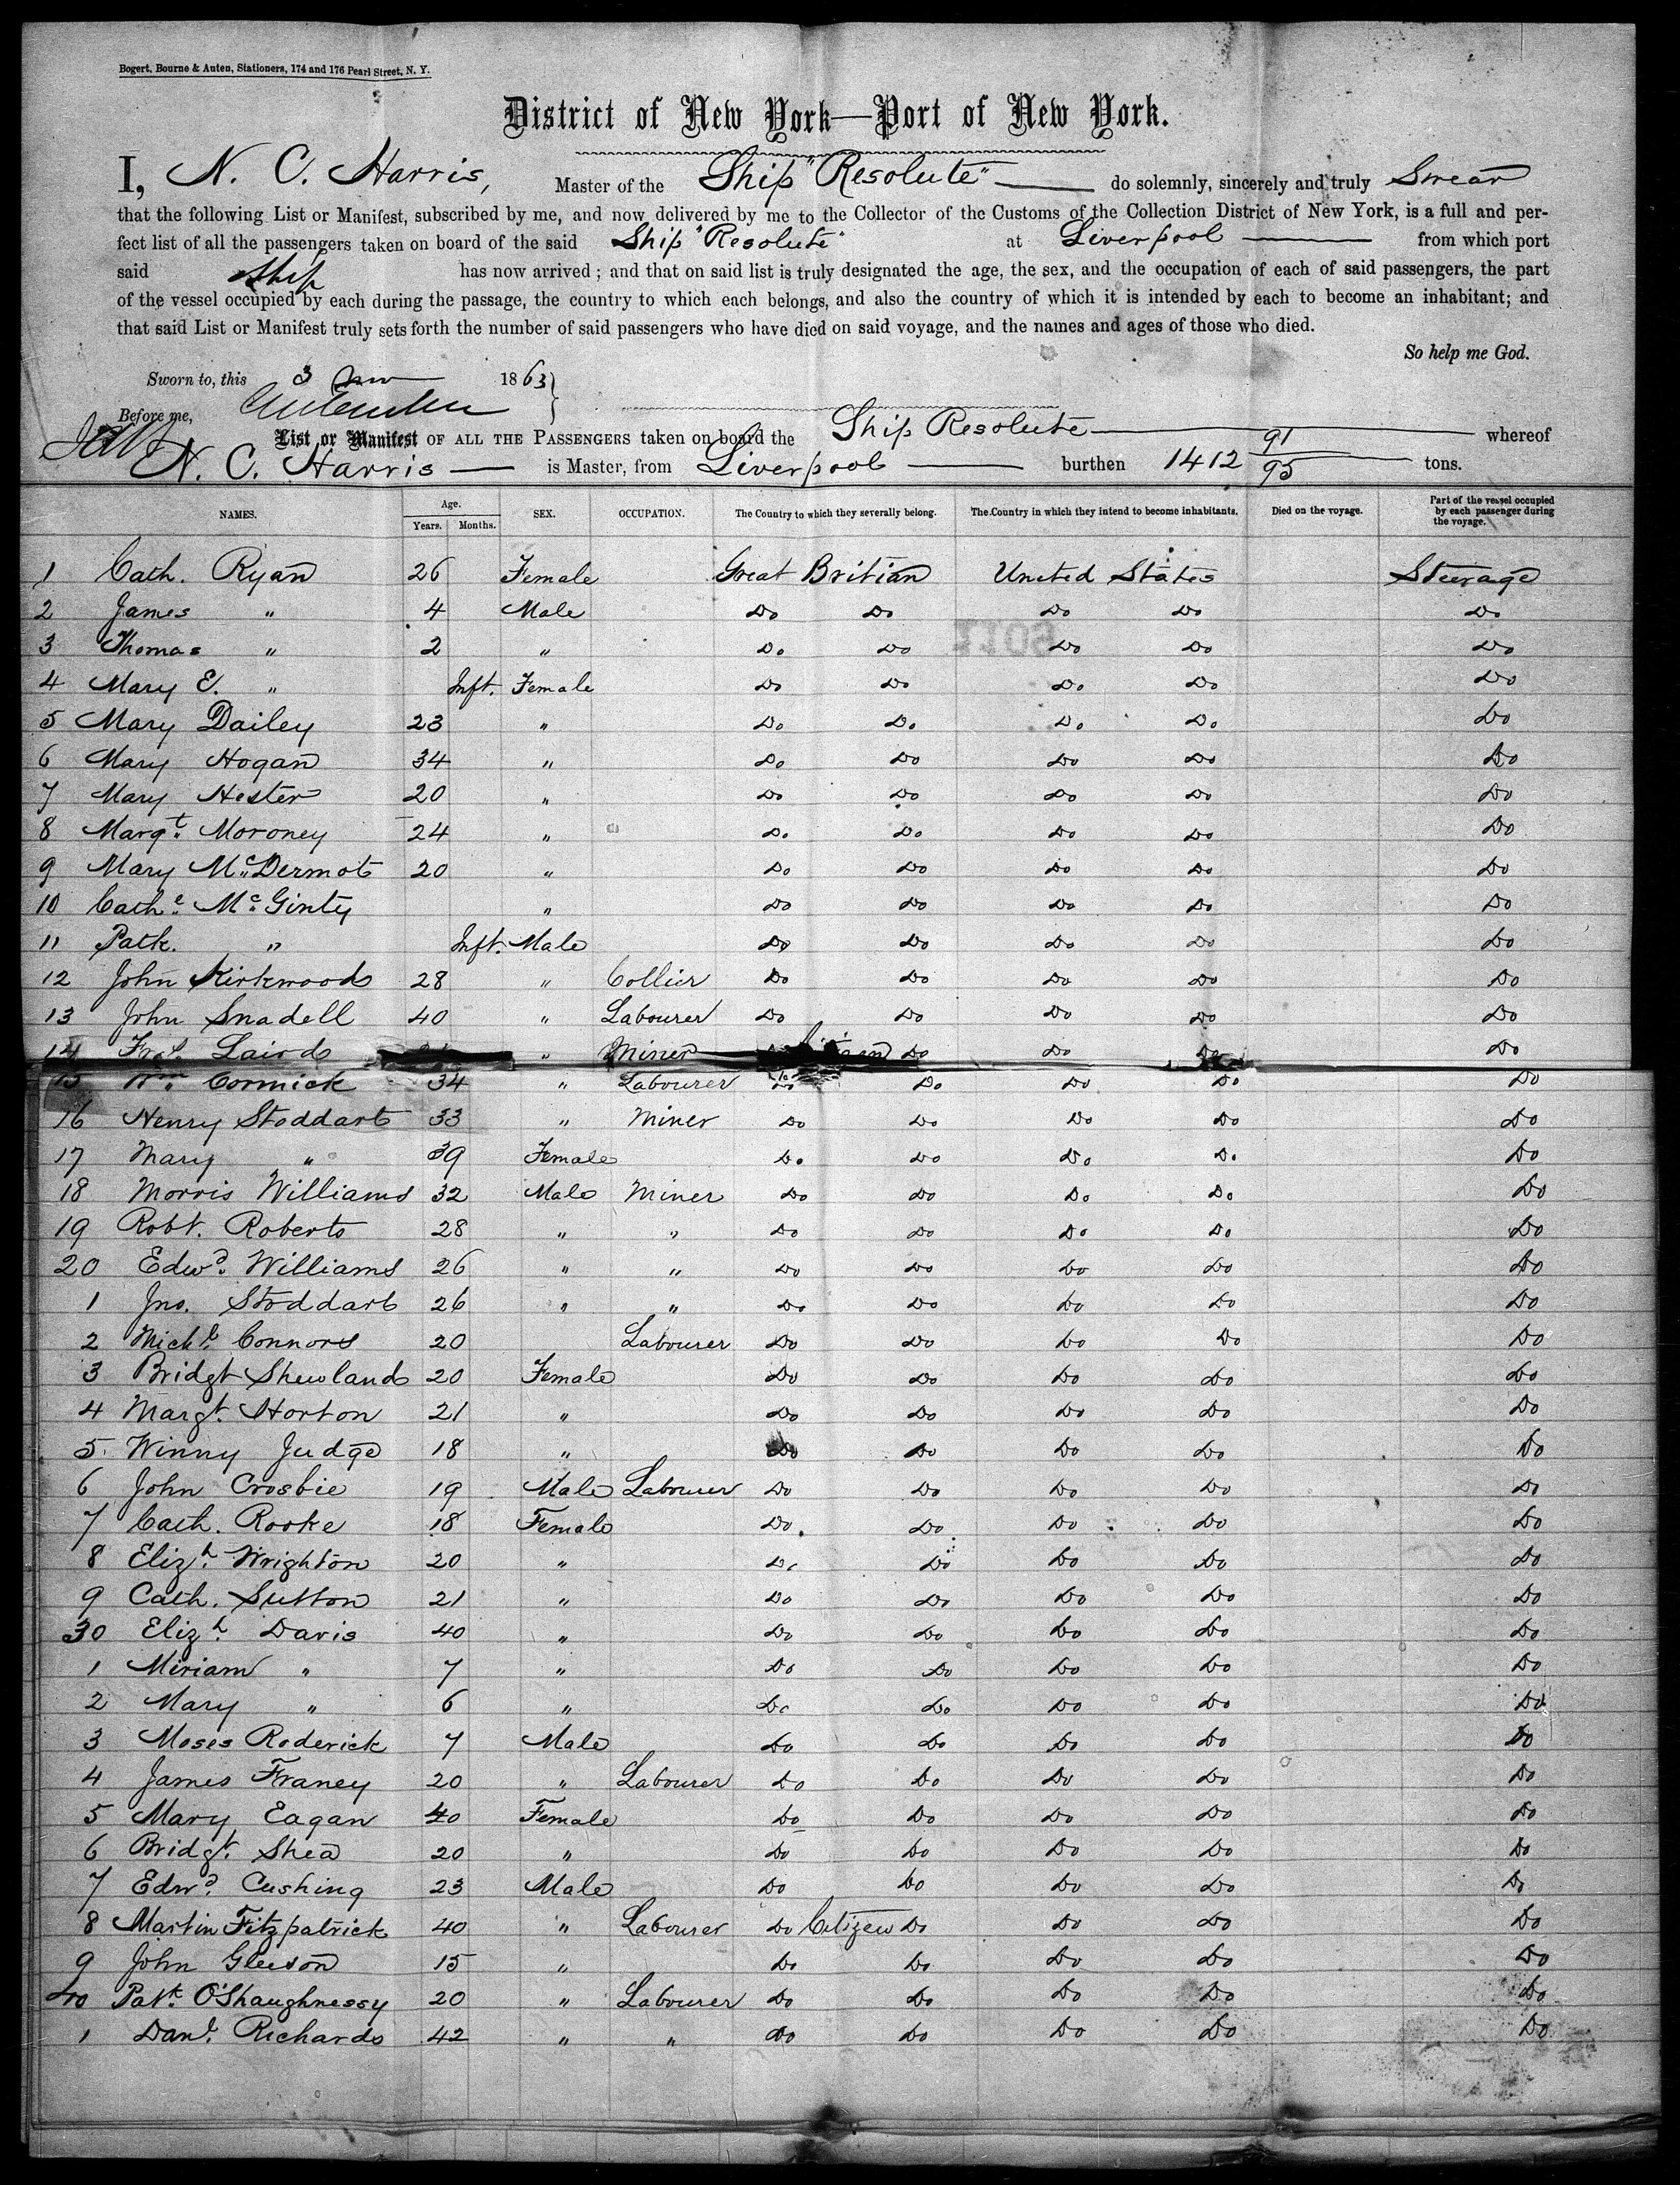 Bogert, Bourne & Auten, Stationers, 174 and 176 Pearl Street, N. Y.
District of New York—Port of New York.
I, N. C. Harris, Master of the Ship "Resolute" do solemnly, sincerely and truly Swear
that the following List or Manifest, subscribed by me, and now delivered by me to the Collector of the Customs of the Collection District of New York, is a full and per-
fect list of all the passengers taken on board of the said Ship "Resolute" at Liverpool from which port
said Ship has now arrived; and that on said list is truly designated the age, the sex, and the occupation of each of said passengers, the part
of the vessel occupied by each during the passage, the country to which each belongs, and also the country of which it is intended by each to become an inhabitant; and
that said List or Manifest truly sets forth the number of said passengers who have died on said voyage, and the names and ages of those who died.
So help me God.
Sworn to, this 3 1863
Before me,
List or Manifest OF ALL THE PASSENGERS taken on board the Ship Resolute whereof
N. C. Harris is Master, from Liverpool burthen 1412 91/95 tons.
NAMES. Age. Years. Months. SEX. OCCUPATION. The Country to which they severally belong. The Country in which they intend to become inhabitants. Died on the voyage. Part of the vessel occupied by each passenger during the voyage.
1 Cath. Ryan 26 Female Great Britian United States Steerage
2 James " 4 Male Do Do Do Do Do
3 Thomas " 2 " Do Do Do Do Do
4 Mary E. " Inft. Female Do Do Do Do Do
5 Mary Dailey 23 " Do Do Do Do Do
6 Mary Hogan 34 " Do Do Do Do Do
7 Mary Hester 20 " Do Do Do Do Do
8 Margt. Moroney 24 " Do Do Do Do Do
9 Mary McDermot 20 " Do Do Do Do Do
10 Cathe. McGinty " Do Do Do Do Do
11 Patk. " Inft. Male Do Do Do Do Do
12 John Kirkwood 28 " Collier Do Do Do Do Do
13 John Snadell 40 " Labourer Do Do Do Do Do
14 Laird " Miner Do Do Do Do
15 Wm Cormick 34 " Labourer Do Do Do Do Do
16 Henry Stoddart 33 " Miner Do Do Do Do Do
17 Mary " 39 Female Do Do Do Do Do
18 Morris Williams 32 Male Miner Do Do Do Do Do
19 Robt. Roberts 28 " " Do Do Do Do Do
20 Edwd. Williams 26 " " Do Do Do Do Do
1 Jno. Stoddart 26 " " Do Do Do Do Do
2 Michl. Connors 20 Labourer Do Do Do Do Do
3 Bridgt Shewland 20 Female Do Do Do Do Do
4 Margt. Horton 21 " Do Do Do Do Do
5 Winny Judge 18 " Do Do Do Do Do
6 John Crosbie 19 Male Labourer Do Do Do Do Do
7 Cath. Rooke 18 Female Do Do Do Do Do
8 Elizh. Wrighton 20 " Do Do Do Do Do
9 Cath. Sutton 21 " Do Do Do Do Do
30 Elizh. Davis 40 " Do Do Do Do Do
1 Miriam " 7 " Do Do Do Do Do
2 Mary " 6 " Do Do Do Do Do
3 Moses Roderick 7 Male Do Do Do Do Do
4 James Franey 20 " Labourer Do Do Do Do Do
5 Mary Eagan 40 Female Do Do Do Do Do
6 Bridgt. Shea 20 " Do Do Do Do Do
7 Edwd. Cushing 23 Male Do Do Do Do Do
8 Martin Fitzpatrick 40 " Labourer Do Citizen Do Do Do Do
9 John Gleeson 15 " Do Do Do Do Do
40 Patk. O'Shaughnessy 20 " Labourer Do Do Do Do Do
1 Danl. Richards 42 " " Do Do Do Do Do